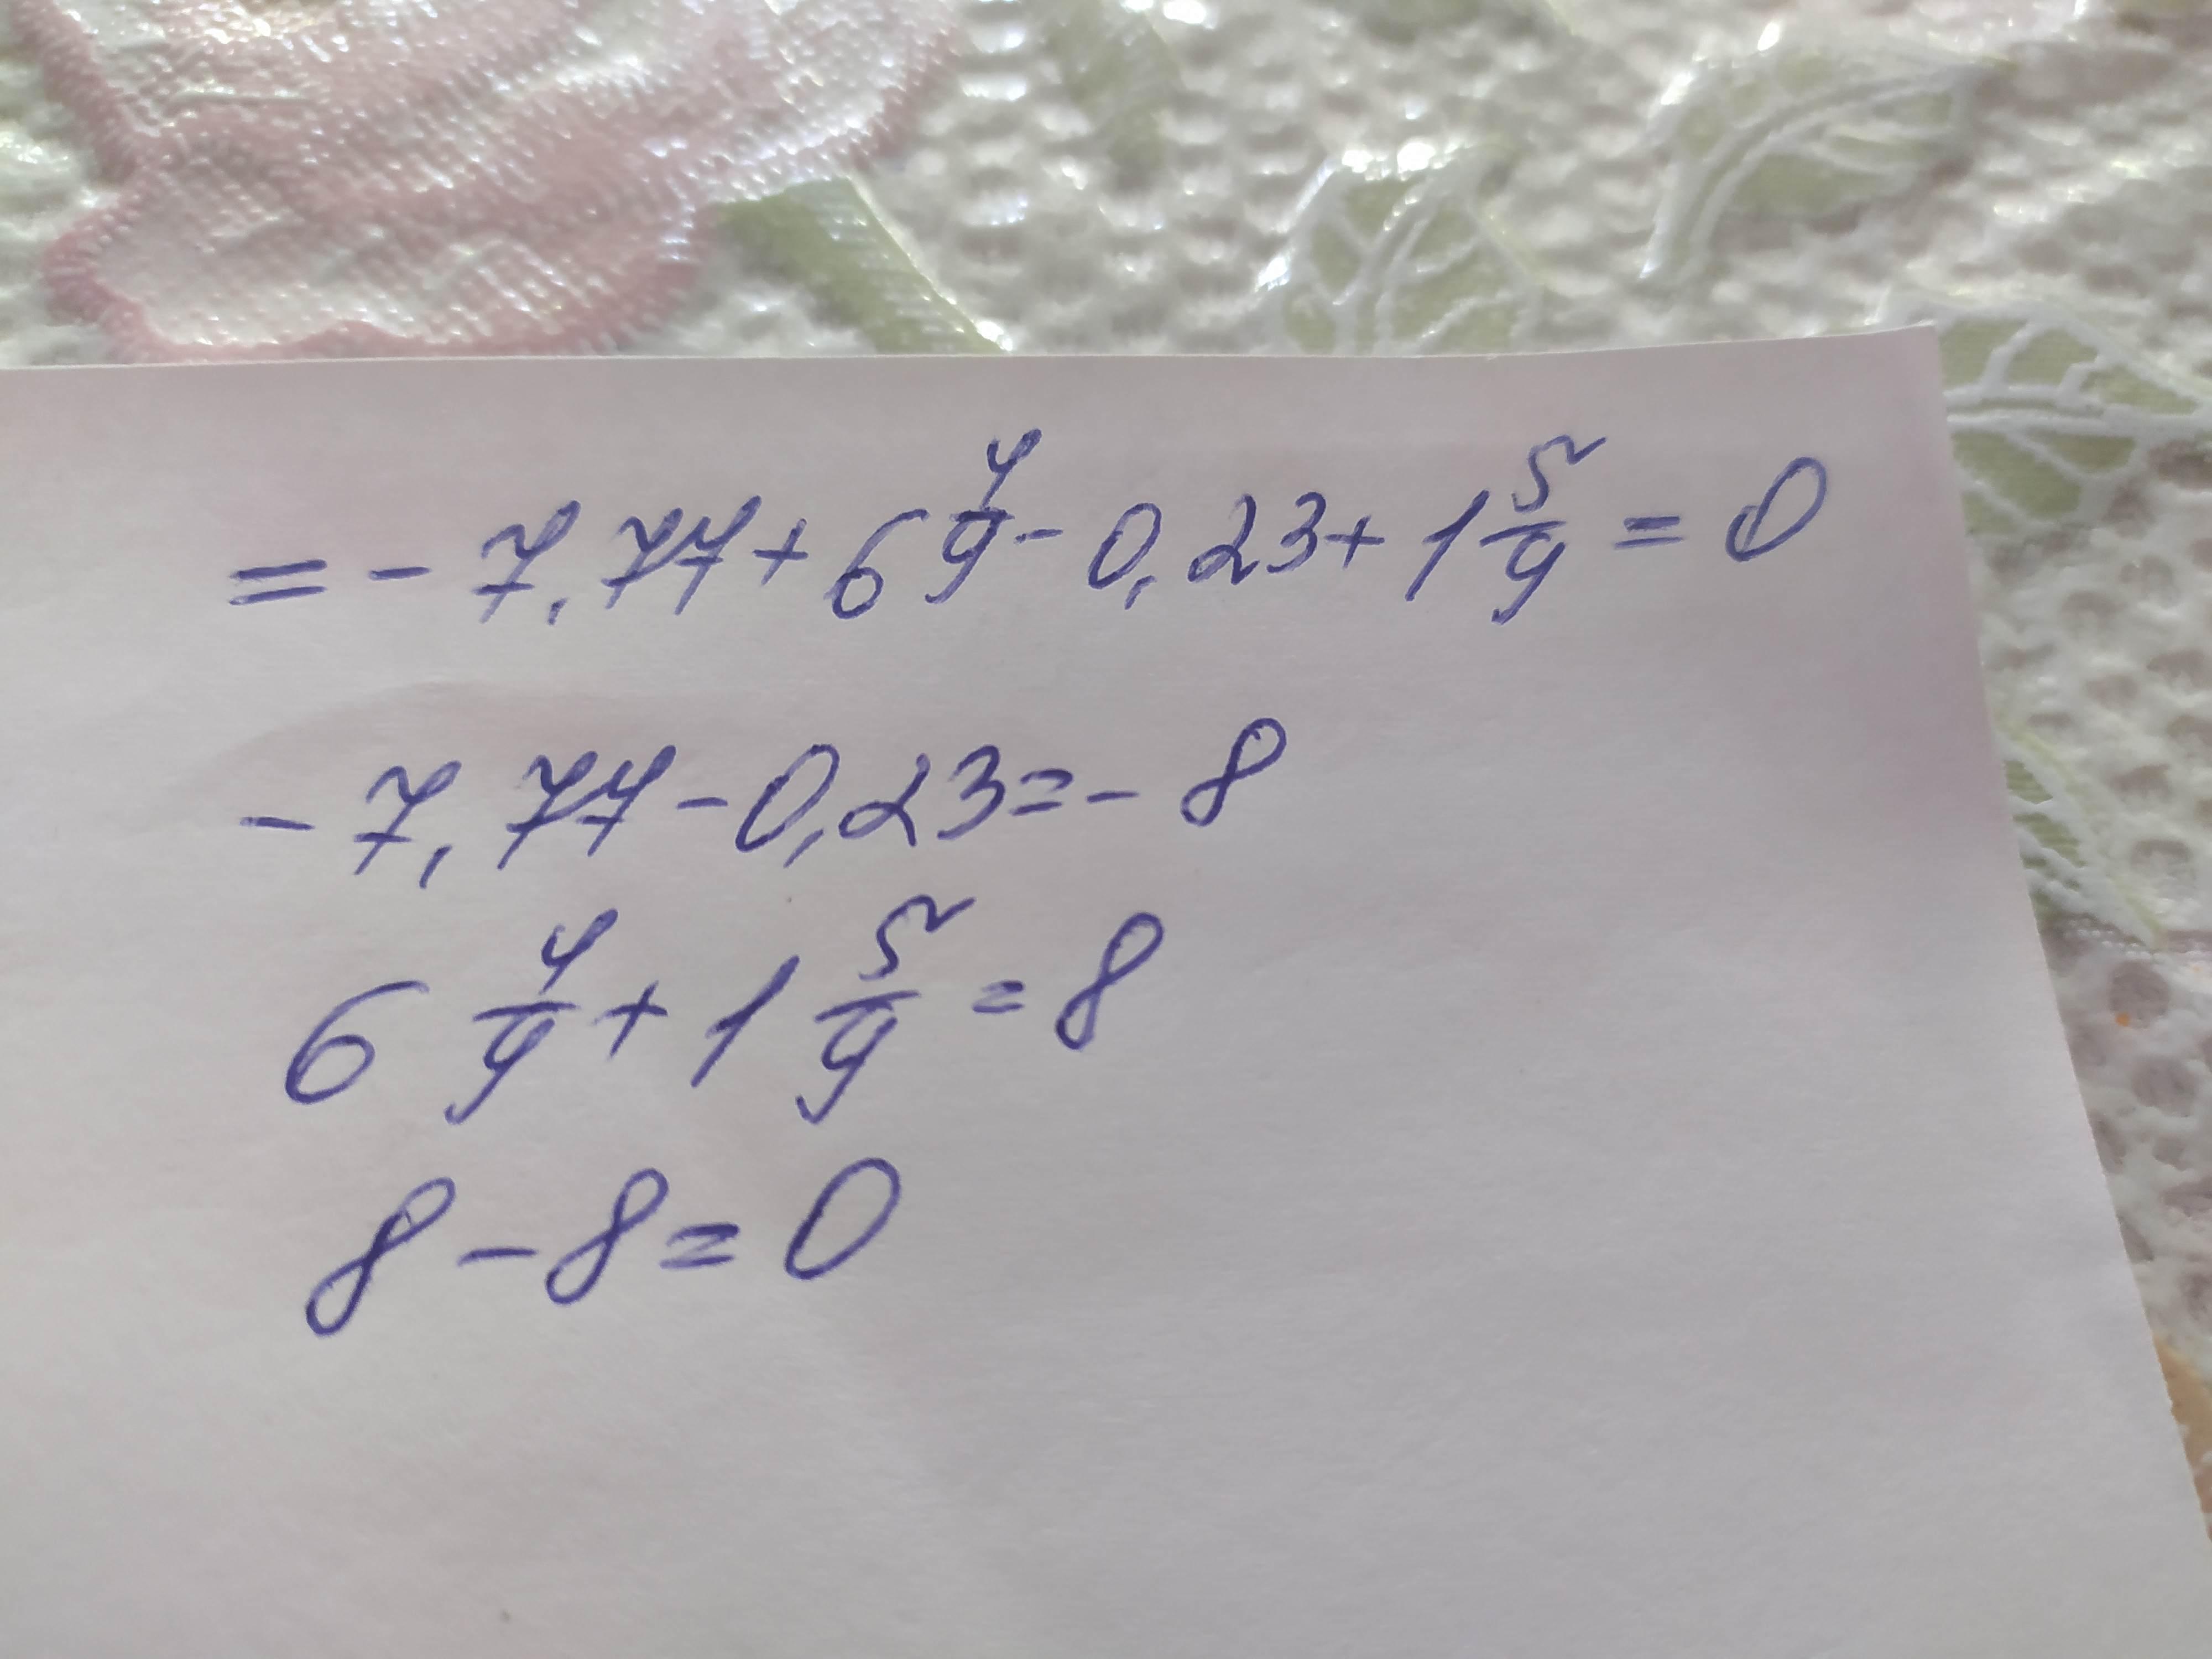 = - 7,77 + 6 4/9 - 0,23 + 1 5/9 = 0
- 7,77 - 0,23 = - 8
6 4/9 + 1 5/9 = 8
8 - 8 = 0